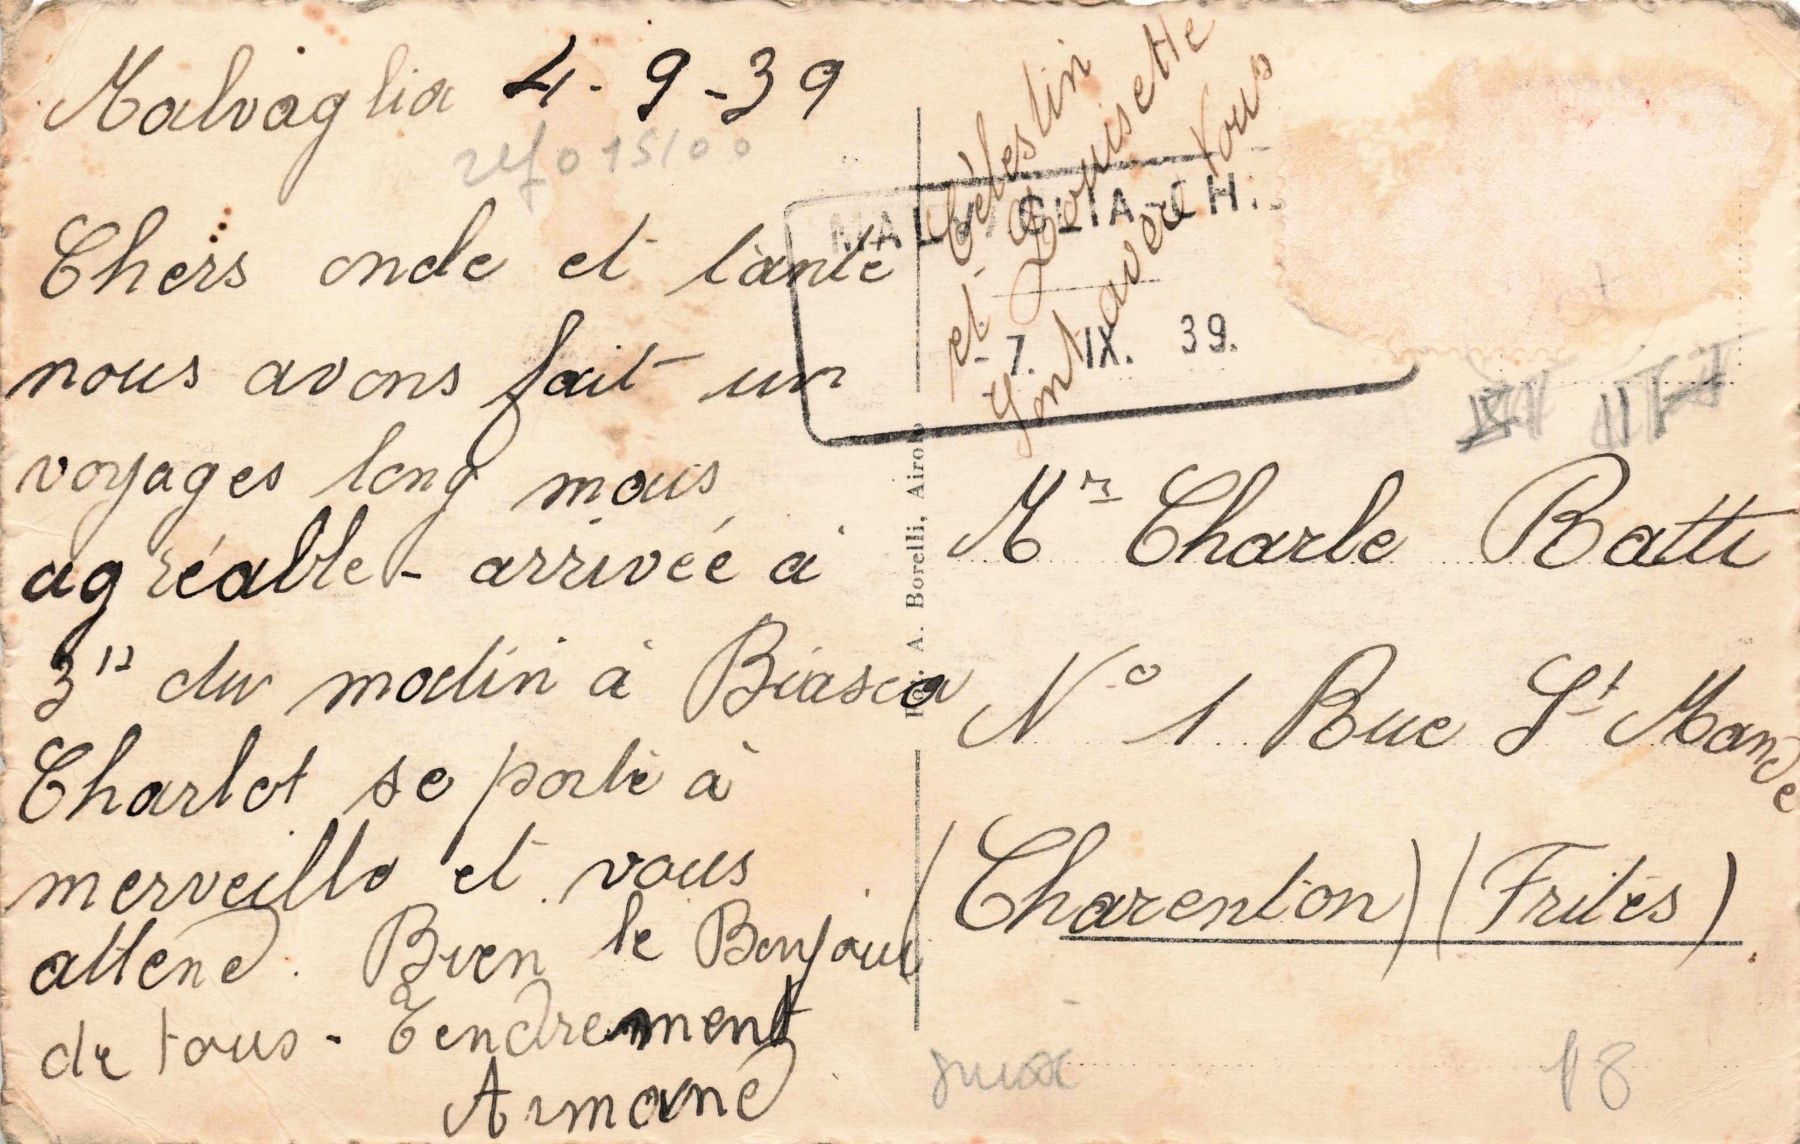 Malvaglia 4-9-39
ref 015/00
Chers oncle et tànte
nous avons fait un
voyages long mais
agréable - arrivée à
3" du matin à Biasca
Charlot se porte à
merveille et vous
attend. Bien le Bonjour
de tous - Tendrement
Armand
Célestin
et Louisette
sont avec vous
MALVAGLIA-CH.
- 7. IX. 39.
A. Borelli, Airolo
Mr Charle Batti
No 1 Rue St Mande
(Charenton) (Frites).
18